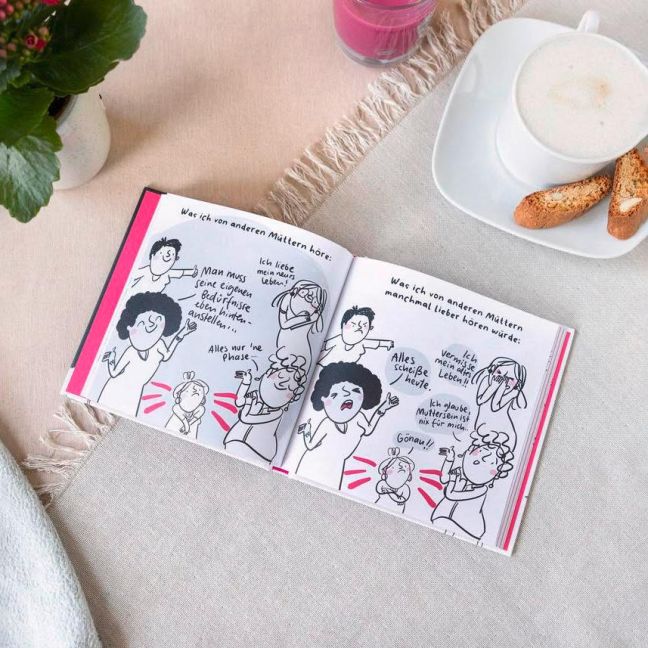 Was ich von anderen Müttern höre:
Ich liebe
mein neues
Leben!
Man muss
seine eigenen
Bedürfnisse
eben hinten
anstellen...
Alles nur 'ne
Phase
Was ich von anderen Müttern
manchmal lieber hören würde:
Alles
scheiße
heute.
Vermisse
mein altes
Leben!!
Ich glaube,
Muttersein ist
nix für mich..
Gönau!!